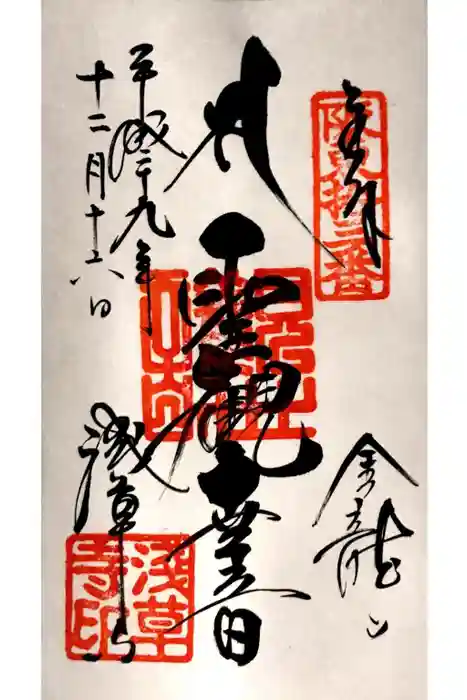 奉拝
坂東拾三番
金龍山
聖観世音
平成二十九年
十二月十六日
浅草寺
浅草寺印